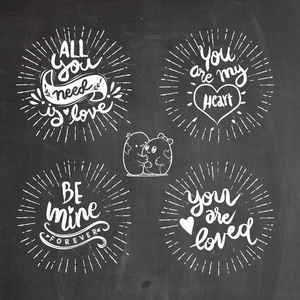 ALL
You
need
is love
You
are my
Heart
BE
mine
FOREVER
you
are
loved